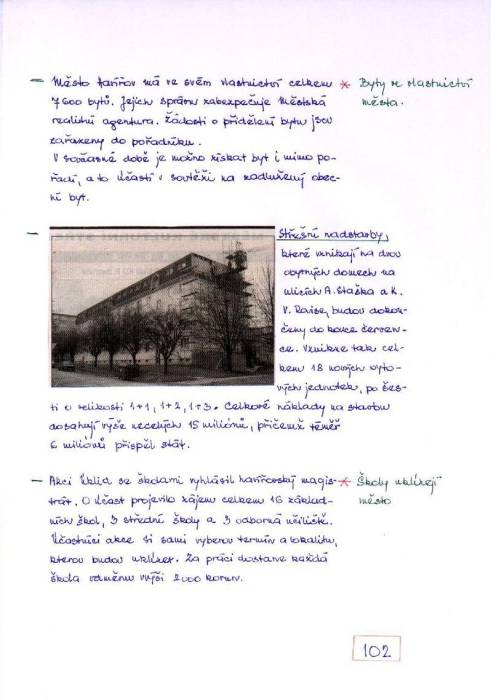 – Město Havířov má ve svém vlastnictví celkem * Byty ve vlastnictví
7600 bytů. Jejich správu zabezpečuje Městská města.
realitní agentura. Žádosti o přidělení bytu jsou
zařazeny do pořadníku.
V současné době je možno získat byt i mimo po-
řadí, a to účastí v soutěži na zadlužený obec-
ní byt.
– Střešní nadstavby,
které vznikají na dvou
obytných domech na
ulicích A. Staška a K.
V. Raise, budou dokon-
čeny do konce červen-
ce. Vznikne tak cel-
kem 18 nových byto-
vých jednotek, po šes-
ti o velikosti 1+1, 1+2, 1+3. Celkové náklady na stavbu
dosahují výše necelých 15 miliónů, přičemž téměř
6 miliónů přispěl stát.
– Akci Úklid se školami vyhlásil havířovský magis- * Školy uklízejí
trát. O účast projevilo zájem celkem 16 základ- město
ních škol, 3 střední školy a 3 odborná učiliště.
Účastníci akce si sami vyberou termín a lokalitu,
kterou budou uklízet. Za práci dostane každá
škola odměnu ve výši 2000 korun.
102